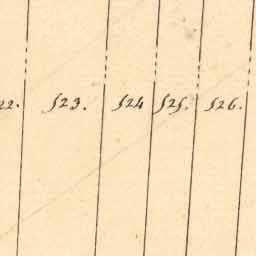 22. 523. 524 525. 526.